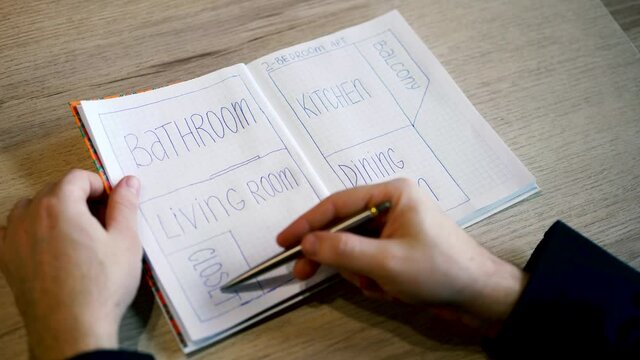 BATHROOM
LIVING ROOM
CLOS
2-BEDROOM APT
KITCHEN
BALCONY
DINING